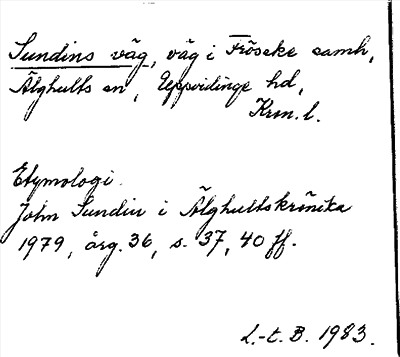 Sundins väg, väg i Fröseke samh,
Älghults sn, Uppvidinge hd,
Krm. l.
Etymologi
John Sundin i Älghultskrönika
1979, årg. 36, s. 37, 40 ff.
L.-t. B. 1983.